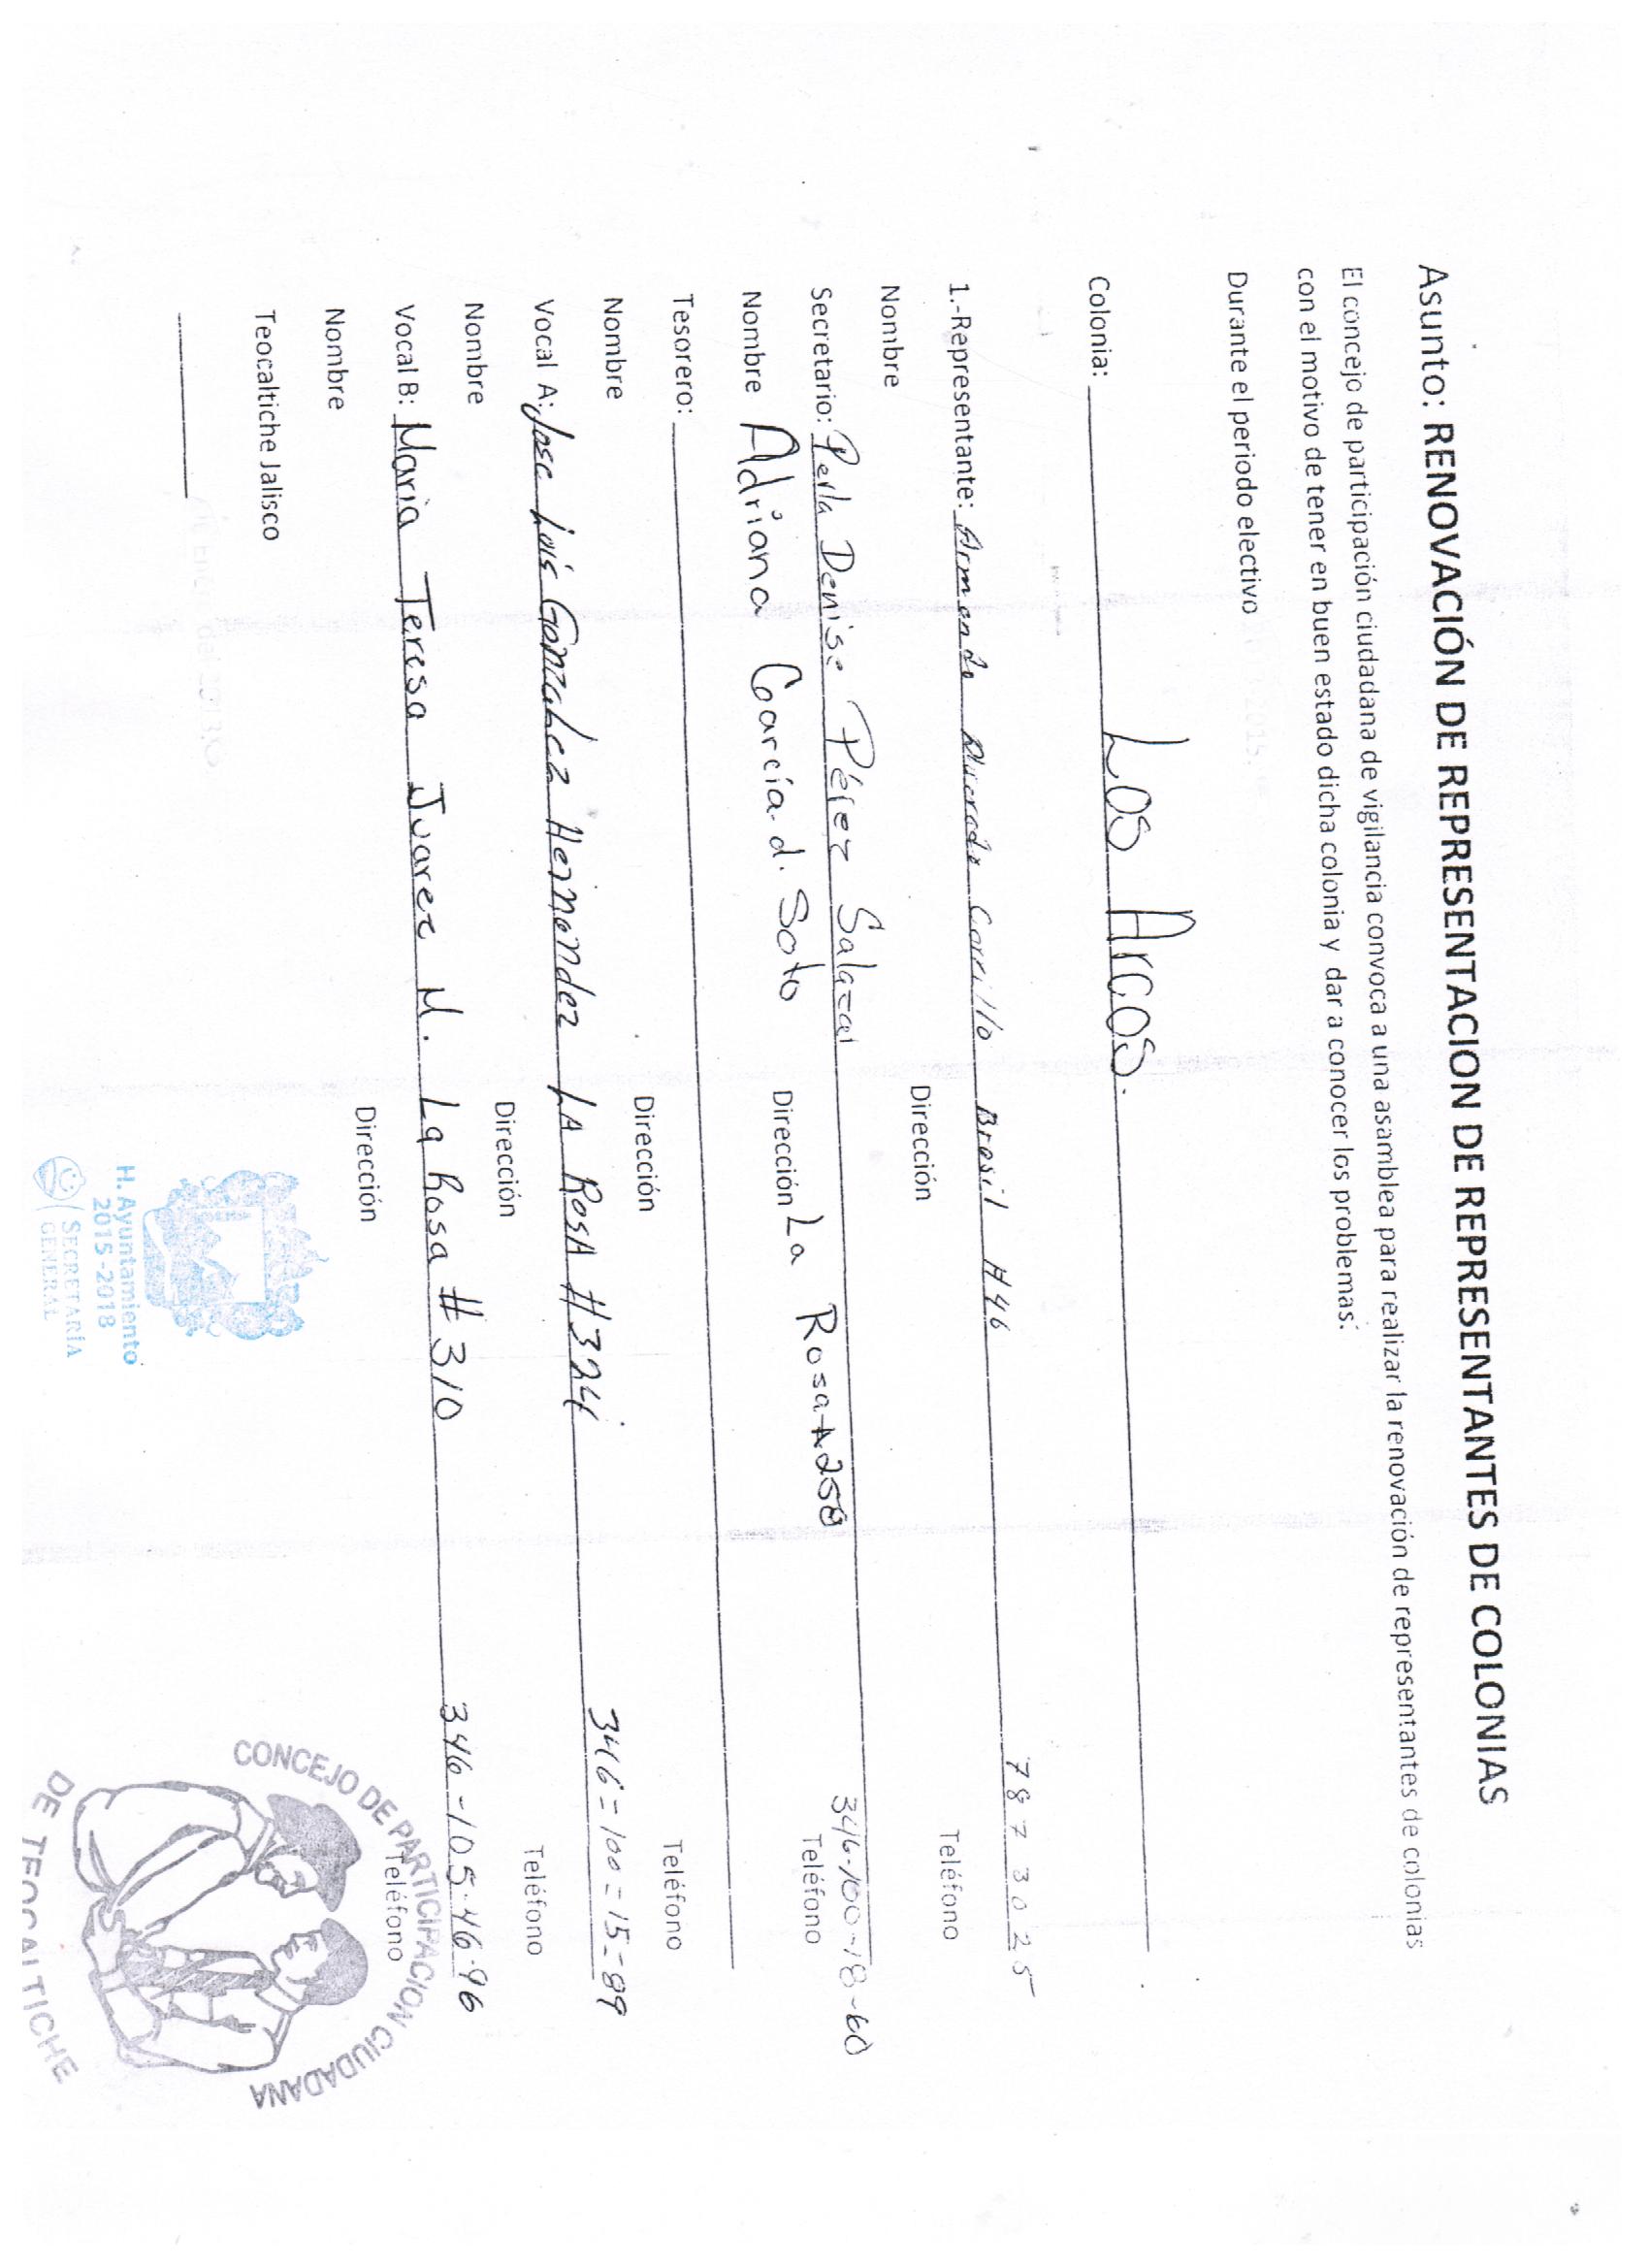 Asunto: RENOVACIÓN DE REPRESENTACION DE REPRESENTANTES DE COLONIAS
El concejo de participación ciudadana de vigilancia convoca a una asamblea para realizar la renovación de representantes de colonias
con el motivo de tener en buen estado dicha colonia y dar a conocer los problemas.
Durante el periodo electivo
Colonia: Los Arcos.
1.-Representante: Armando Carrillo Brasil #46 7873025
Nombre Dirección Teléfono
Secretario: Perla Denise Pérez Salazar 346-100-18-60
Nombre Dirección Teléfono
Adriana García d. Soto La Rosa 258
Tesorero:
Nombre Dirección Teléfono
Vocal A: Jose Luis Gonzalez Hernandez LA ROSA #324 346=100=15=89
Nombre Dirección Teléfono
Vocal B: Maria Teresa Juarez M. La Rosa #310 346-105-46-96
Nombre Dirección Teléfono
Teocaltiche Jalisco
H. Ayuntamiento
2015-2018
SECRETARÍA
GENERAL
CONCEJO DE PARTICIPACION CIUDADANA
DE TEOCALTICHE